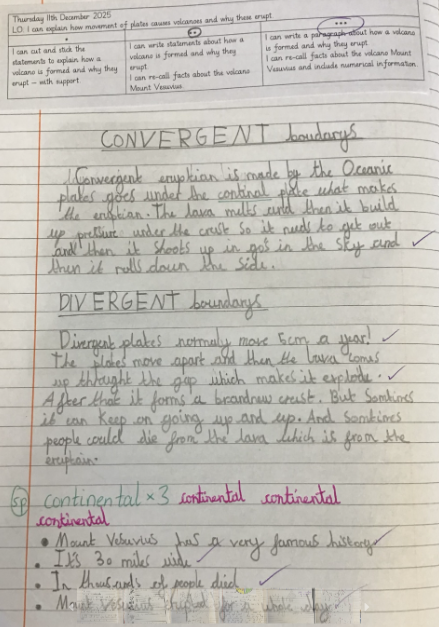 Thursday 11th December 2025
LO: I can explain how movement of plates causes volcanoes and why these erupt
*
**
***
I can cut and stick the
statements to explain how a
volcano is formed and why they
erupt – with support.
I can write statements about how a
volcano is formed and why they
erupt.
I can re-call facts about the volcano
Mount Vesuvius.
I can write a paragraph about how a volcano
is formed and why they erupt
I can re-call facts about the volcano Mount
Vesuvius and include numerical information.
CONVERGENT boundarys
Convergent eruptian is made by the Oceanic
plates goes under the continal plate what makes
the eruptian. The lava melts and then it build
up pressure under the crust so it needs to get out
and then it shoots up in in the sky and
then it rolls down the side.
DIVERGENT boundarys
Divergent plates normuly move 5cm a year!
The plates move apart and then the lava comes
up throught the gap which makes it explode.
After that it forms a brandnew crust. But Somtimes
it can keep on going up and up. And somtimes
people could die from the lava which is from the
eruptain.
Sp continental x 3 continental continental
continental
• Mount Vesuvius has a very famous history
• It's 30 miles wide
• In thousands of people died
• Mount Vesuvius for a whole day